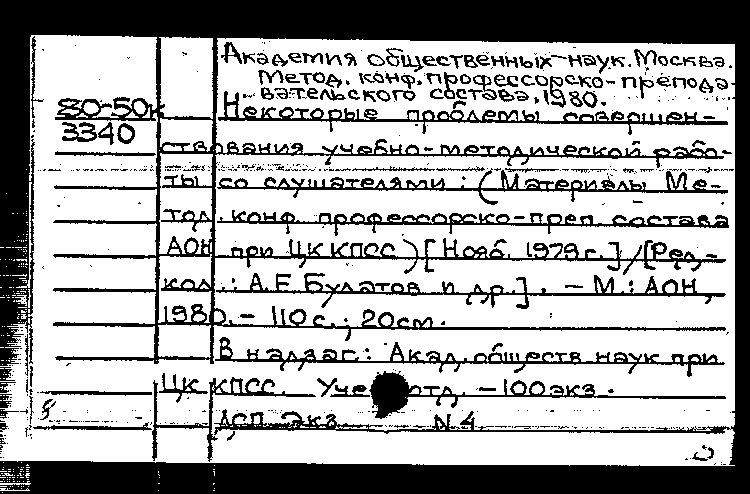 Академия общественных наук. Москва.
Метод. конф. профессорско-препода-
вательского состава, 1980.
80-50к
3340
Некоторые проблемы совершен-
ствования учебно-методической рабо-
ты со слушателями: (Материалы Ме-
тод. конф. профессорско-преп. состава
АОН при ЦК КПСС) [Нояб. 1979 г.] / [Ред.-
кол.: А.Е. Булатов и др.]. - М.: АОН,
1980. - 110 с.; 20 см.
В надзаг.: Акад. обществ наук при
ЦК КПСС. отд. - 100 экз.
ДСП Экз. N 4